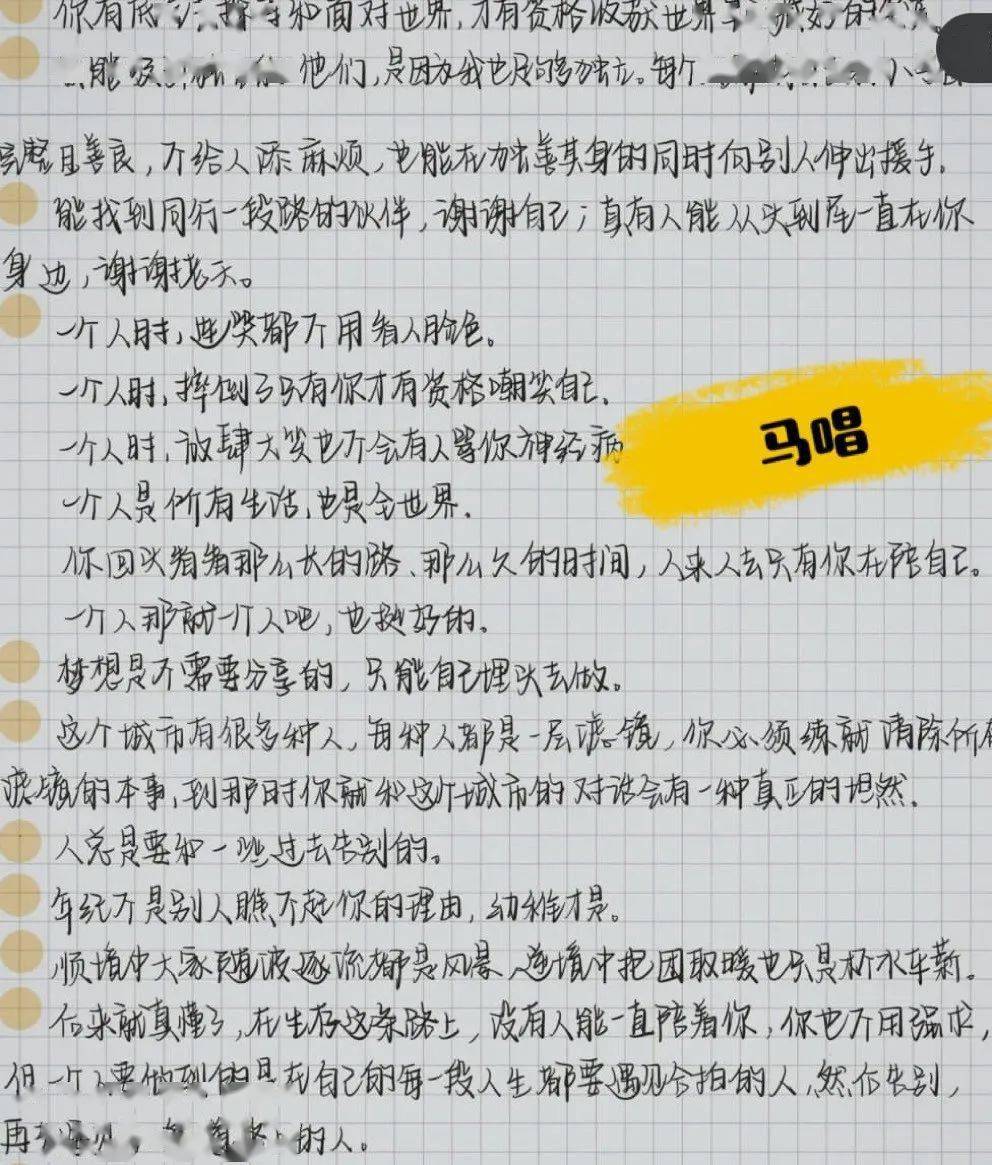 你有底气探寻和面对世界,才有资格收获世界
他们,是因为我也足够独立。每个
完整且善良,不给人添麻烦,也能在独善其身的同时向别人伸出援手.
能找到同行一段路的伙伴,谢谢自己;真有人能从头到尾一直在你
身边,谢谢老天。
一个人时,连哭都不用看人脸色。
一个人时,摔倒了只有你才有资格嘲笑自己.
一个人时,放肆大笑也不会有人骂你神经病
马唱
一个人是所有生活,也是全世界.
你回头看看那么长的路、那么久的时间,人来人去只有你在陪自己。
一个人那就一个人吧,也挺好的.
梦想是不需要分享的,只能自己埋头去做。
这个城市有很多种人,每种人都是一层滤镜,你必须练就清除所有
滤镜的本事,到那时你就和这个城市的对话会有一种真正的坦然.
人总是要和一些过去告别的。
年纪不是别人瞧不起你的理由,幼稚才是。
顺境中大家随波逐流都是风景,逆境中抱团取暖也只是杯水车薪。
后来就真懂了,在生存这条路上,没有人能一直陪着你,你也不用强求,
但一个人要做到的是在自己的每一段人生都要遇见合拍的人,然后告别,
再 的人。